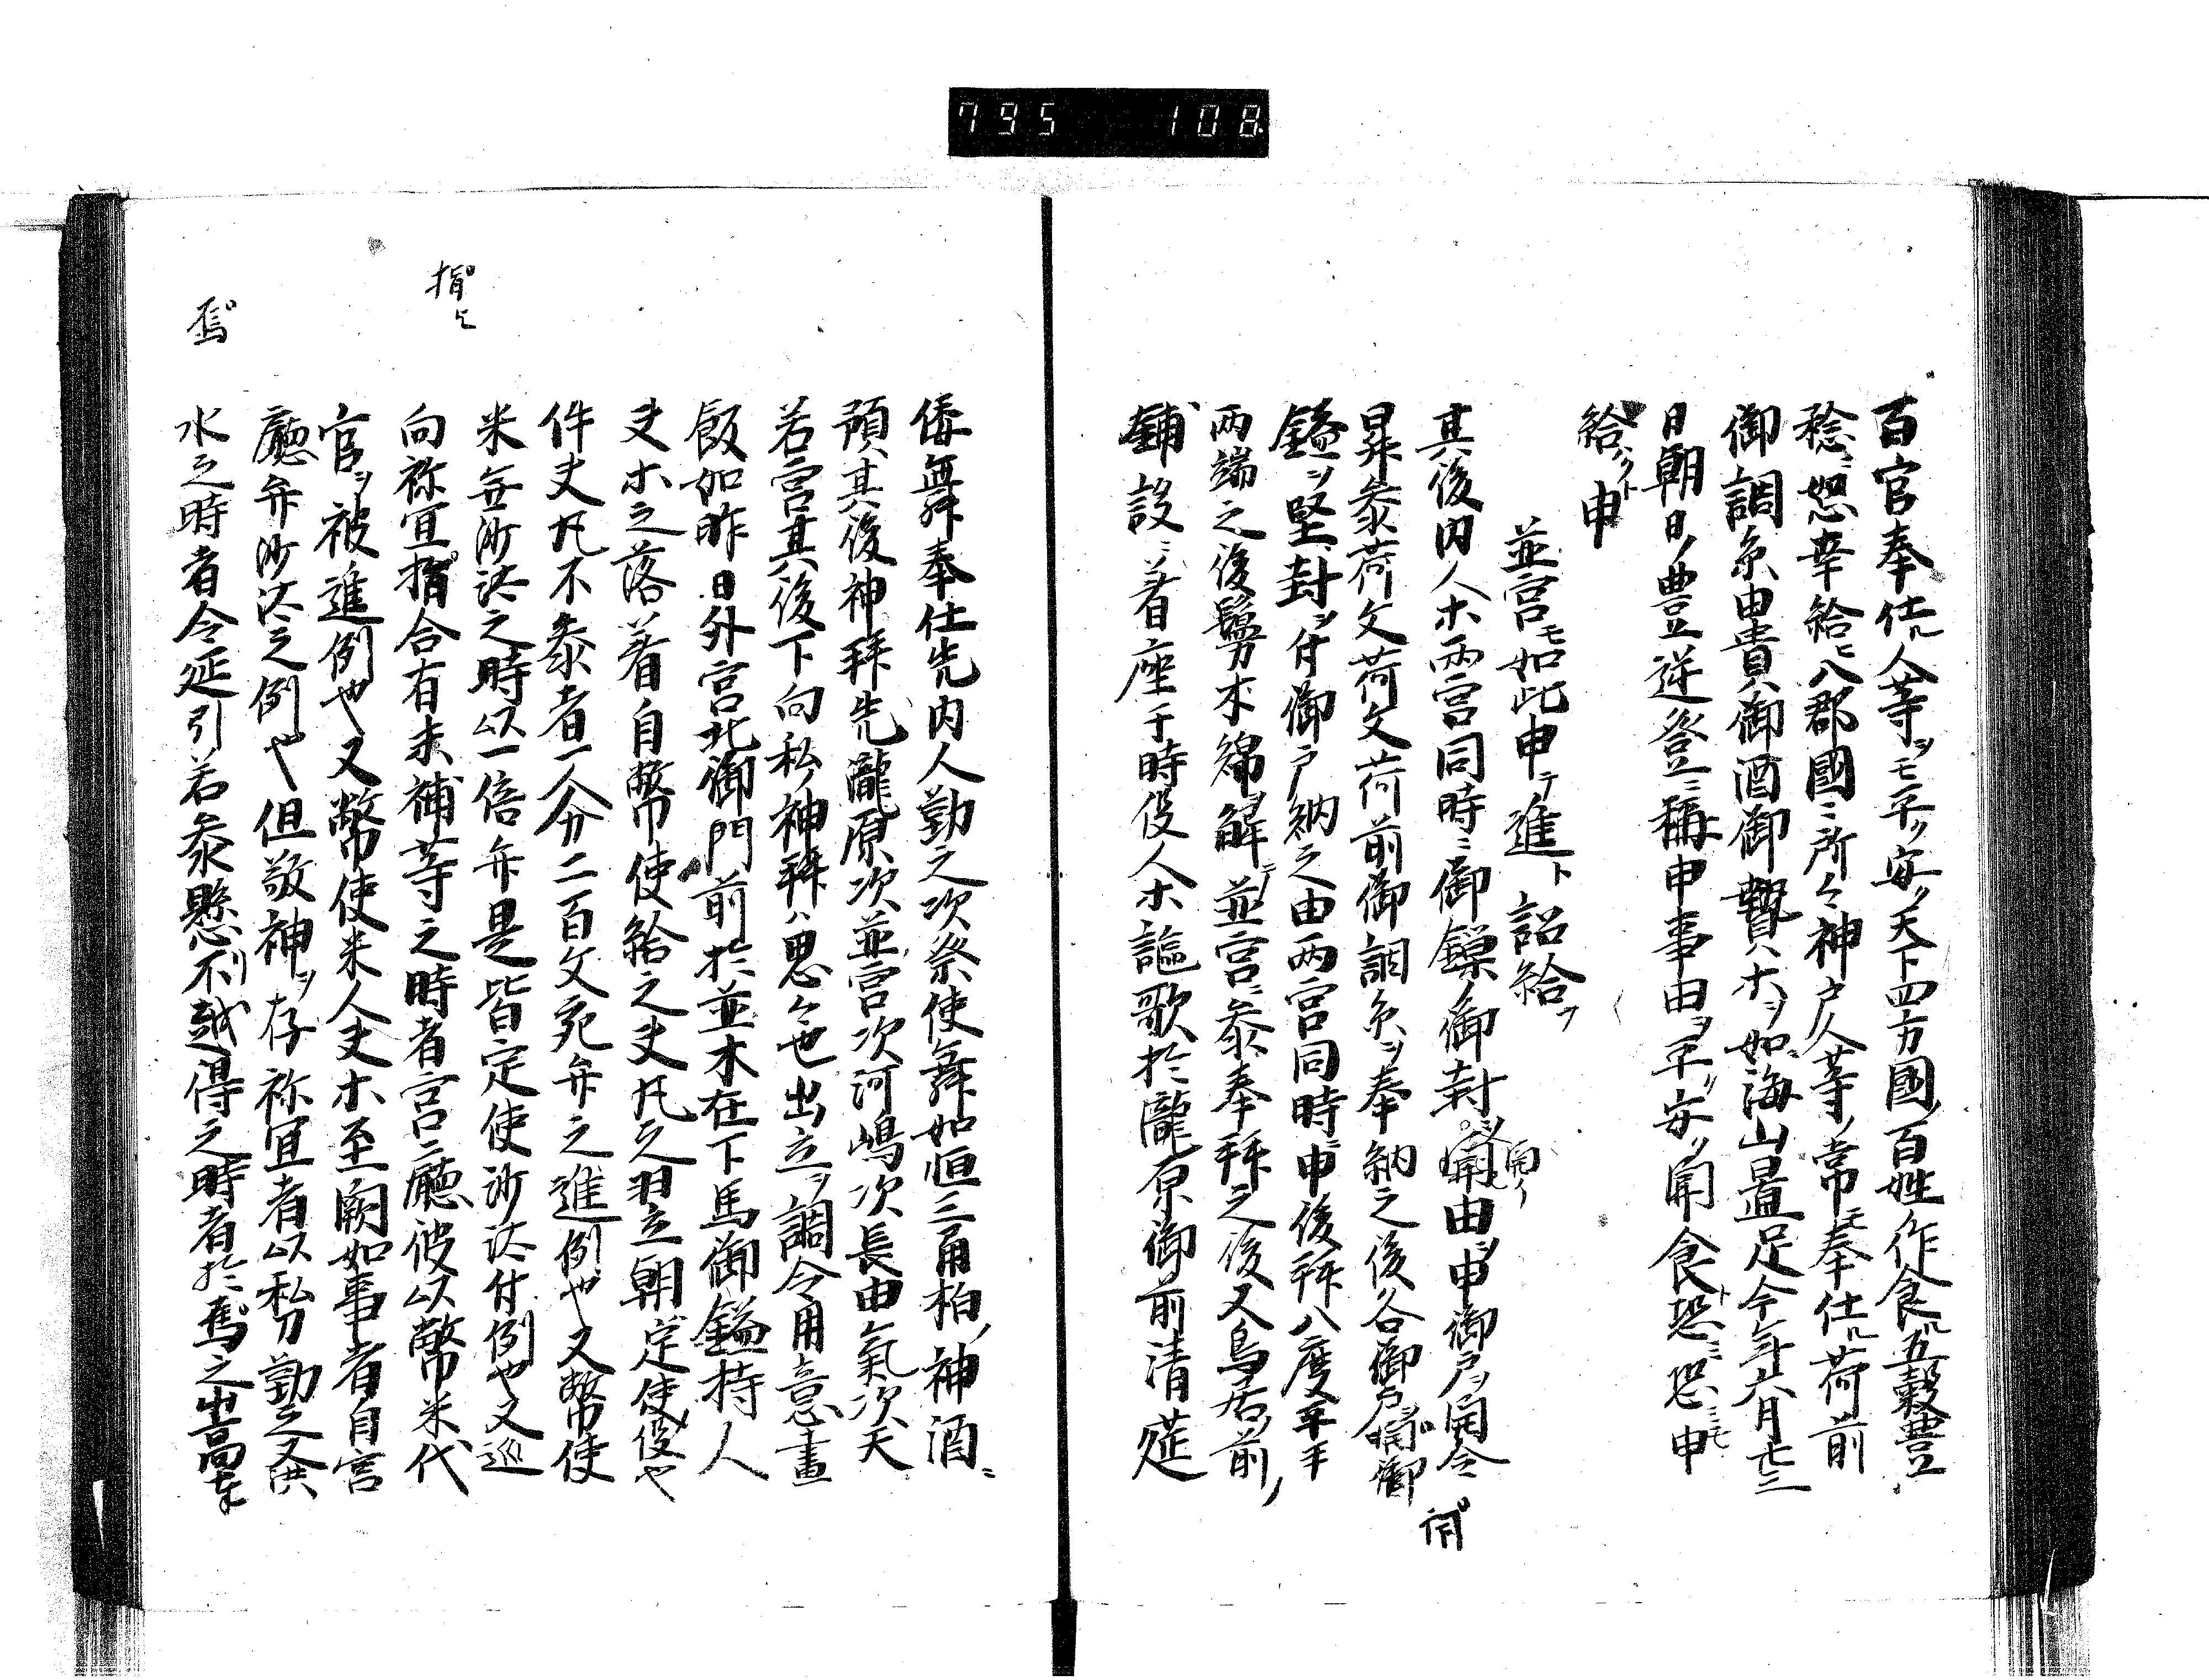 795 108
百官奉仕ル人等ヲモ平ク安ク天下四方國ノ百姓作食ル五穀豊
稔ニ恕幸給ヒ八郡國々所々神戸人等ノ常モ奉仕ル荷前
御調糸由貴ノ御酒御贄ホヲ如海山置足今年六月廿三
日朝日ノ豊逆登ニ稱申事由ヲ平ク安ク聞食ト恐ミ恐ミモ申
給ハクト申
並宮モ如此申テ進ト詔給フ
其後内人ホ両宮同時ニ御鏁ノ御封ヲ開由ヲ申御戸ヲ開令
開ク
開
舁參荷文荷文荷前御調糸ヲ奉納之後各御戸ヲ闢御
鎰ヲ堅封ヲ付御戸納之由両宮同時ニ申後拜八度平手
両端之後鬘木綿解テ並宮ニ參奉拜之後又鳥居ノ前ノ
鋪設ニ着座于時役人ホ謳歌於瀧原御前清莚
倭舞奉仕先内人勤之次祭使舞如恒三角柏ノ神酒ニ
預其後神拜先瀧原次並宮次河嶋次長由氣次天
若宮其後下向私ノ神拜ハ思々也出立ヲ調令用意晝
飯如昨日外宮北御門前於並木在下馬御鎰持人
夫ホ之落着自幣使給之夫凡之翌朝定使役也
件丈凡不參者一人分二百文宛弁之進例也又幣使
米無沙汰之時以一倍弁是皆定使沙汰付例也又巡
向祢宜指合有未補等之時者宮廳彼以幣米代
指歟
官ヲ被進例也又幣使米人夫ホ至闕如事者自宮
廳弁沙汰之例也但敬神ヲ存祢宜者以私力勤之又洪
水之時者令延引若參懸不越得之時者於馬之出高東
馬